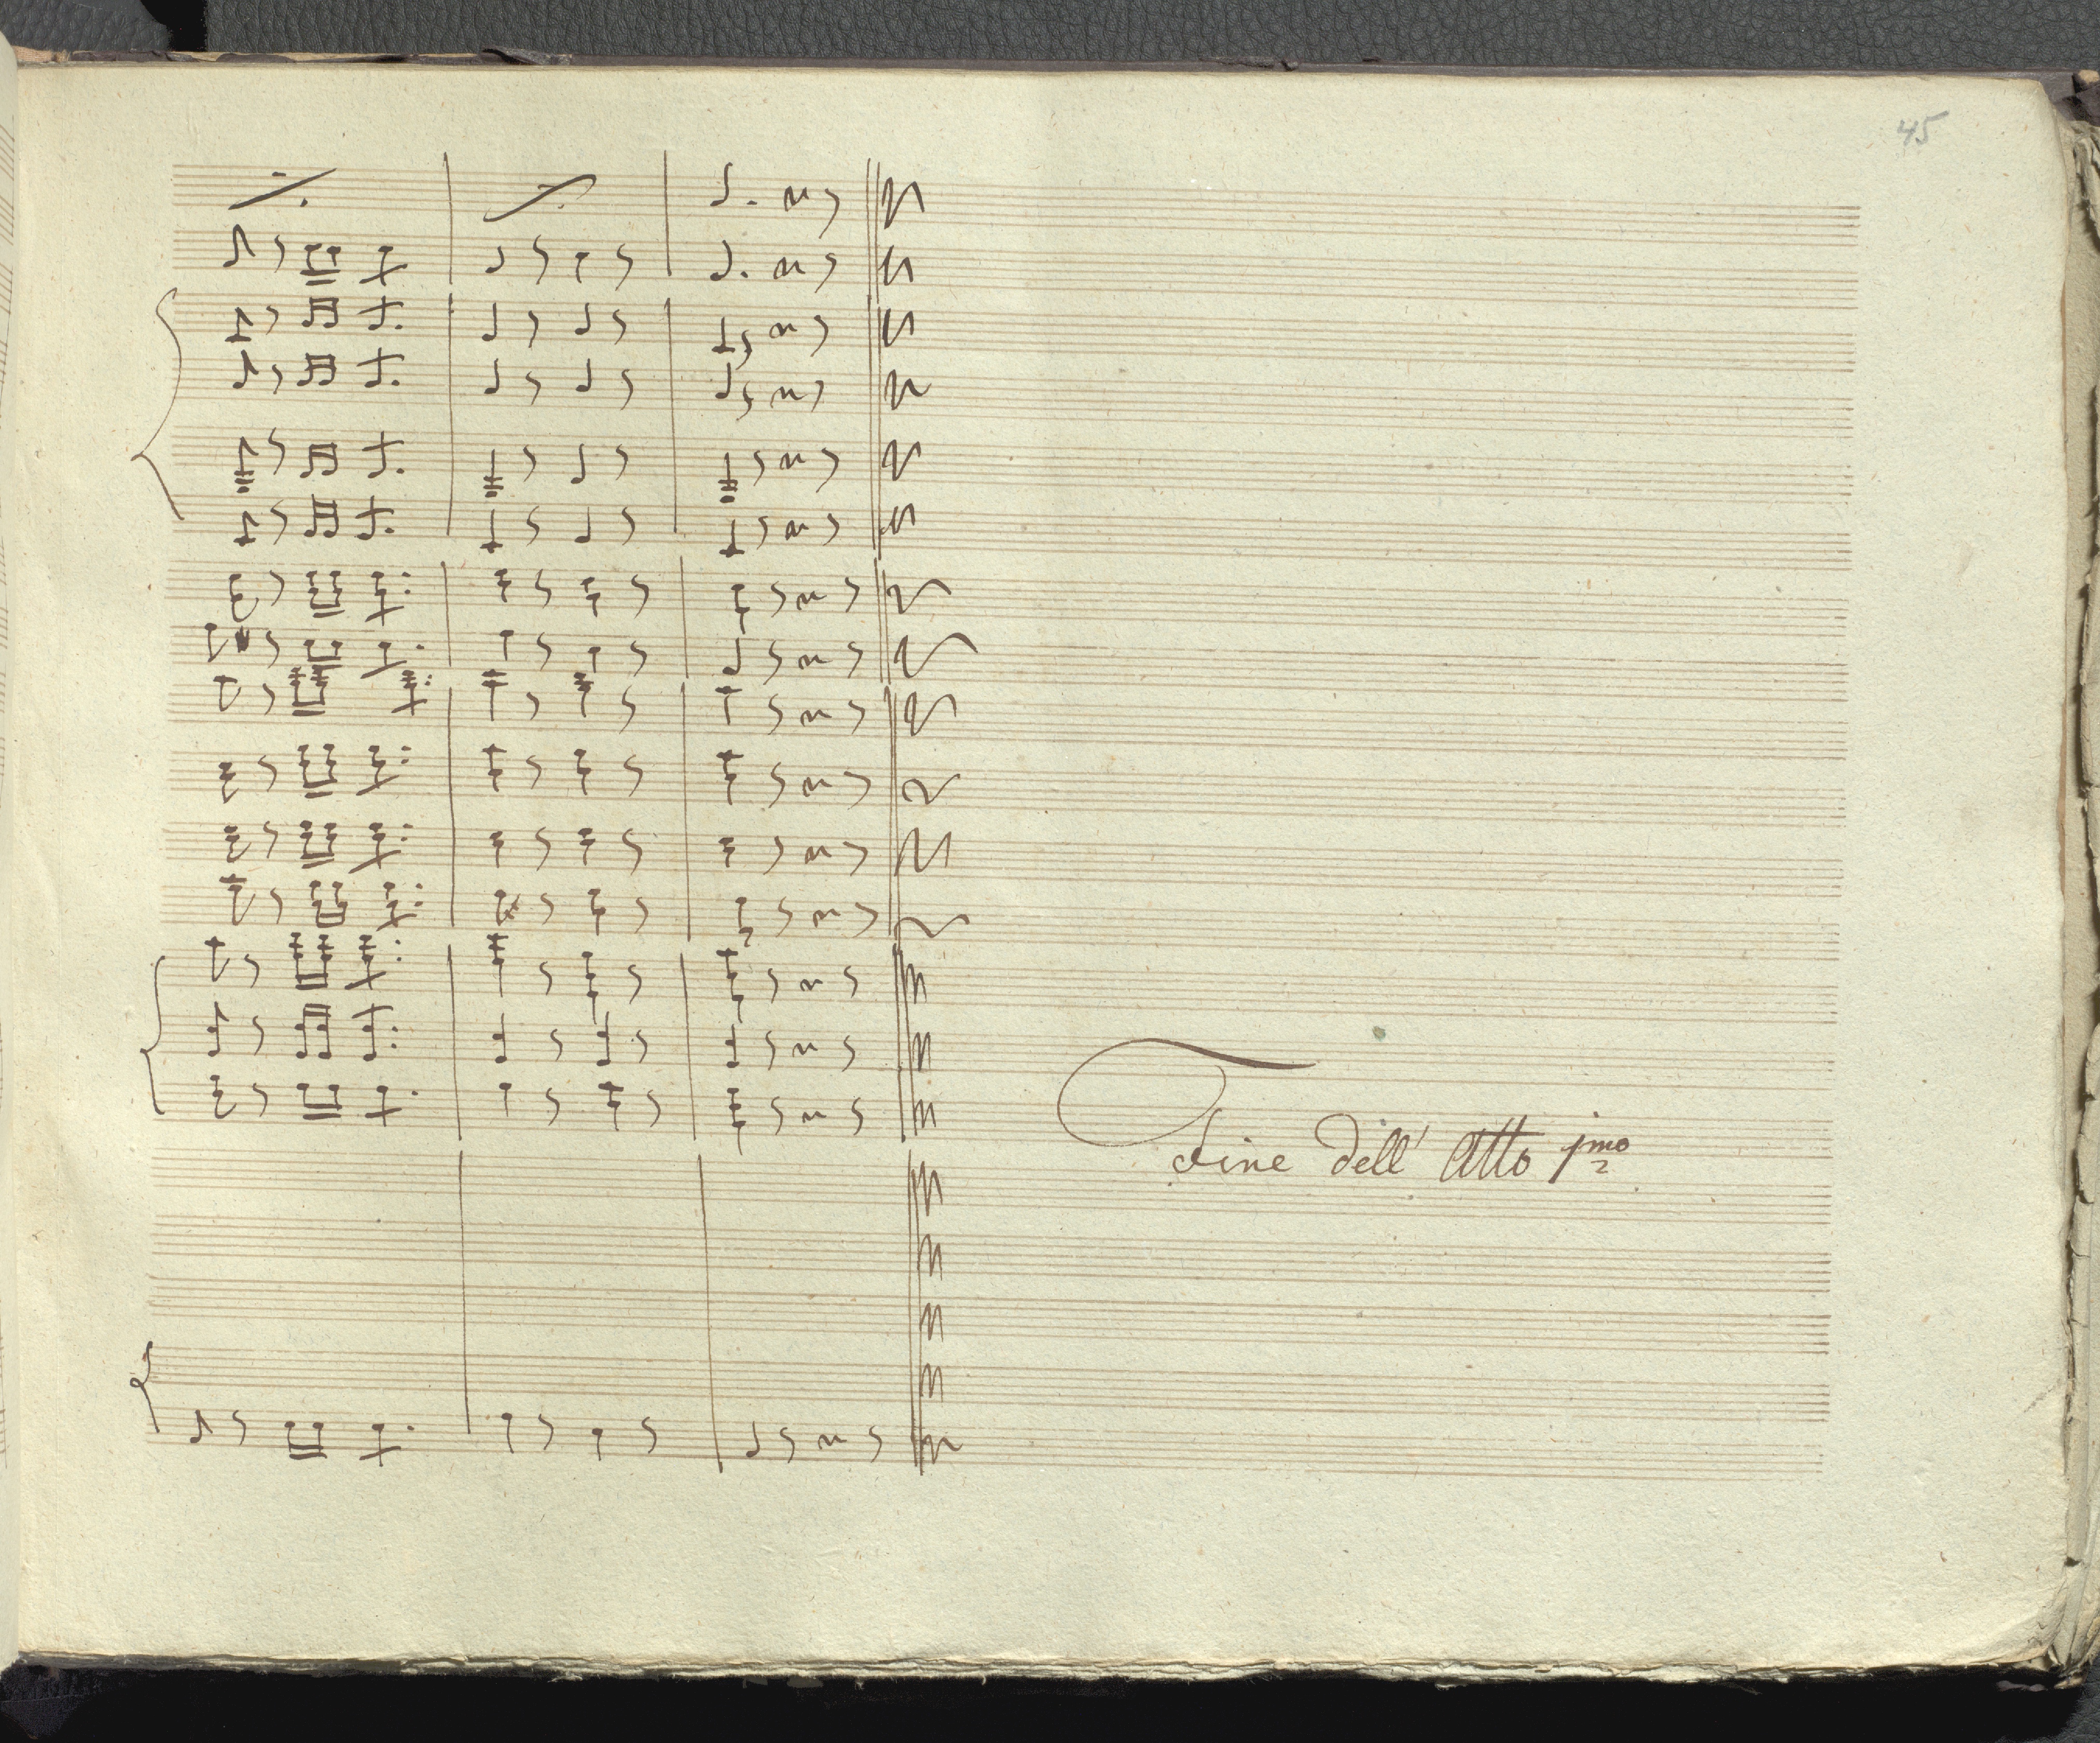 45
Fine dell' Atto 1mo